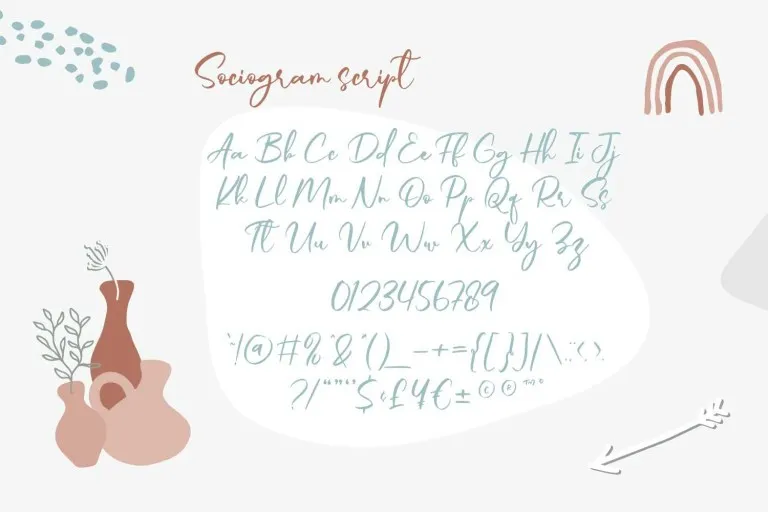 Sociogram script
Aa Bb Cc Dd Ee Ff Gg Hh Ii Jj
Kk Ll Mm Nn Oo Pp Qq Rr Ss
Tt Uu Vv Ww Xx Yy Zz
0123456789
`~!@#%^&*()_-+={[}]/\:;<>
?/“”‘’$¢£¥€±©®™°